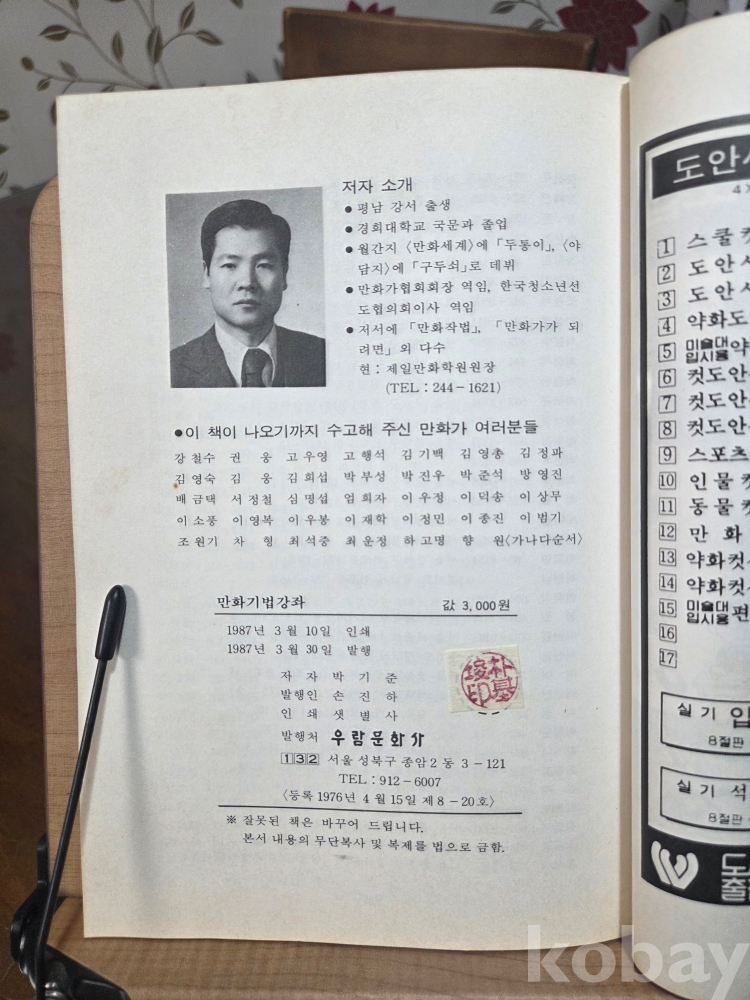 저자 소개
● 평남 강서 출생
● 경희대학교 국문과 졸업
● 월간지 〈만화세계〉에 「두통이」, 〈야
담지〉에 「구두쇠」로 데뷔
● 만화가협회회장 역임, 한국청소년선
도협의회이사 역임
● 저서에 「만화작법」, 「만화가가 되
려면」 외 다수
현 : 제일만화학원원장
(TEL : 244-1621)
● 이 책이 나오기까지 수고해 주신 만화가 여러분들
강철수 권 웅 고우영 고행석 김기백 김영총 김정파
김영숙 김 웅 김희섭 박부성 박진우 박준석 방영진
배금택 서정철 심명섭 엄희자 이우정 이덕송 이상무
이소풍 이영복 이우봉 이재학 이정민 이종진 이범기
조원기 차 형 최석중 최운정 하고명 향 원〈가나다순서〉
만화기법강좌 값 3,000원
1987년 3월 10일 인쇄
1987년 3월 30일 발행
저 자 박 기 준
발행인 손 진 하
인 쇄 샛 별 사
발행처 우람문화사
132 서울 성북구 종암 2 동 3-121
TEL : 912-6007
〈등록 1976년 4월 15일 제 8-20호〉
※ 잘못된 책은 바꾸어 드립니다.
본서 내용의 무단복사 및 복제를 법으로 금함.
朴基埈印
도안
4
1 스쿨
2 도안
3 도안
4 약화도
5 미술대입시용 약
6 컷도안
7 컷도안
8 컷도안
9 스포츠
10 인물
11 동물
12 만 화
13 약화컷
14 약화컷
15 미술대입시용 편
16
17
실 기 입
8절판
실 기 석
8절판
도
출
kobay